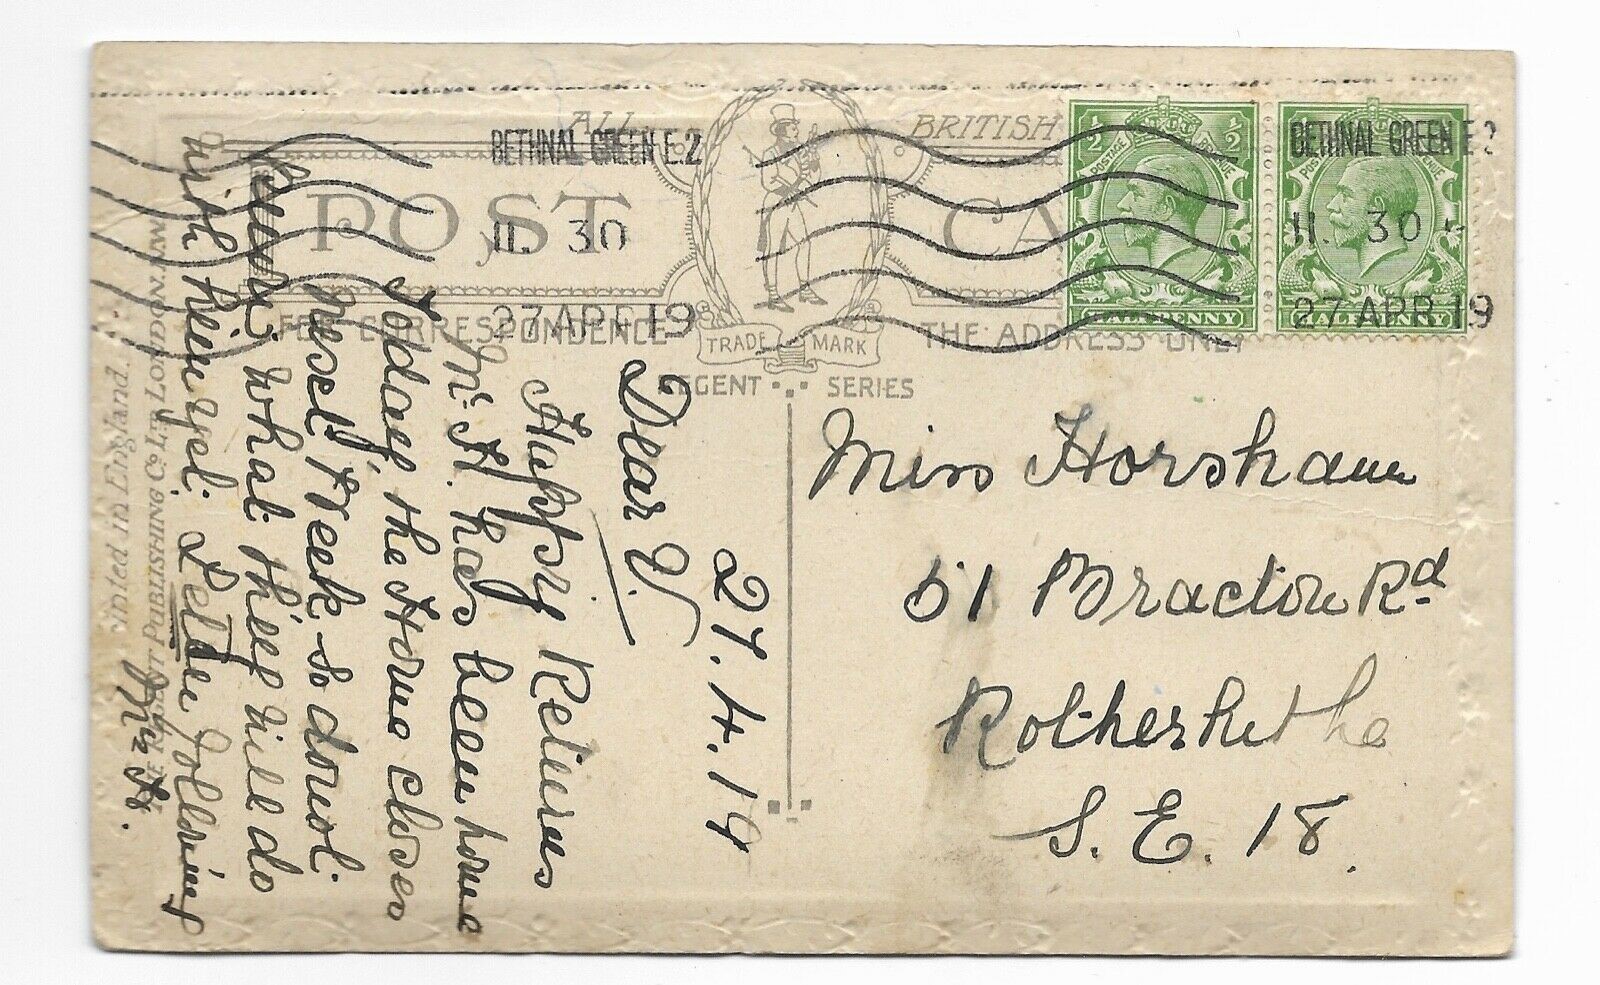 ALL
BRITISH
POST
CA
FOR CORRESPONDENCE
THE ADDRESS ONLY
TRADE MARK
REGENT SERIES
BETHNAL GREEN E.2
11. 30
27 APR 19
BETHNAL GREEN E.2
11. 30
27 APR 19
1/2 1/2
POSTAGE REVENUE
HALFPENNY
1/2
POSTAGE REVENUE
HALFPENNY
27.4.19
Dear V.
Happy Returns
Mr H. has been home
Today, the Home closes
next Week so donot
know what they will do
with him yet. Letter following
Mrs H.
Miss Horsham
51 Bracton Rd
Rotherhithe
S.E. 18.
Printed in England.
THE REGENT PUBLISHING Co LTD LONDON. N.W.